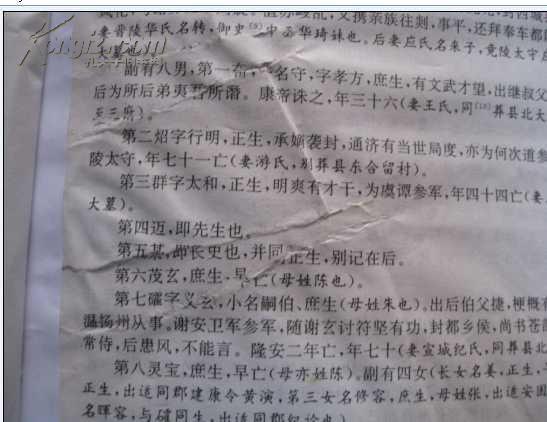 妻晋陵华氏名转,御史(9)中丞华琦妹也。后妻应氏名来子,竟陵太守
副有八男,第一 名守,字孝方,庶生,有文武才望,出继叔父
后为所后弟夷吾所谮。康帝诛之,年三十六(妻王氏,同(10)葬县北大
至三府)。
第二炤字行明,正生,承嫡袭封,通济有当世局度,亦为何次道参
陵太守,年七十一亡(妻游氏,别葬县东合留村)。
第三群字太和,正生,明爽有才干,为虞谭参军,年四十四亡(妻
大墓)。
第四迈,即先生也。
第五某,即长史也,并同正生,别记在后。
第六茂玄,庶生,早亡(母姓陈也)。
第七礭字义玄,小名嗣伯、庶生(母姓朱也)。出后伯父捷,梗概有
温扬州从事。谢安卫军参军,随谢玄讨苻坚有功,封都乡侯,尚书苍部
常侍,后患风,不能言。隆安二年亡,年七十(妻宣城纪氏,同葬县北
第八灵宝,庶生,早亡(母亦姓陈)。副有四女(长女名姜,正生,
正生,出适同郡建康令黄演,第三女名修容,庶生,母姓张,出适安固
名晖容,与礭同生,出适同郡纪
孔夫子旧书网